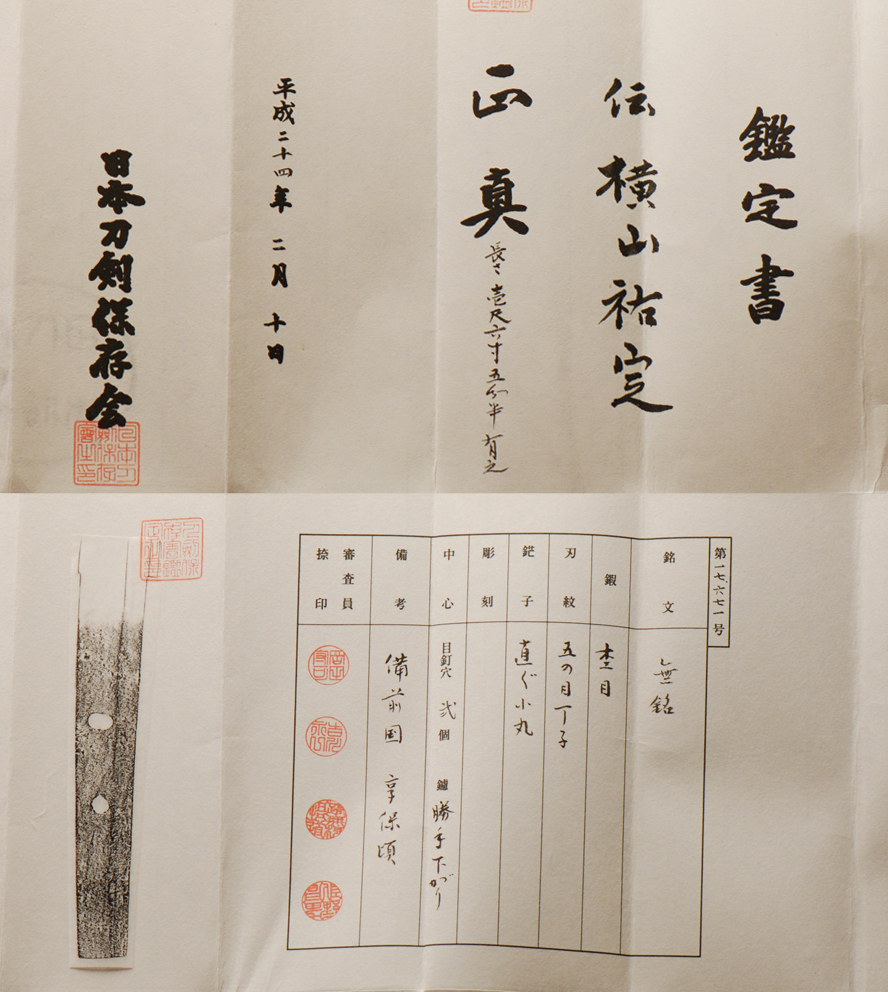 鑑定書
伝横山祐定
正真
長さ壱尺六寸五分半有之
平成二十四年二月十日
日本刀剣保存会
第一七、六七一号
銘文
無銘
鍜
杢目
刃紋
五の目丁子
鋩子
直ぐ小丸
彫刻
中心
目釘穴 弐個 鑢 勝手下がり
備考
備前国 享保頃
審査員
捺印